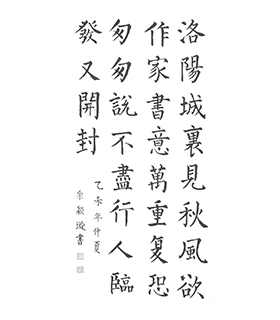 洛陽城裏見秋風欲
作家書意萬重复恐
匆匆說不盡行人臨
發又開封
乙未年仲夏
余穎璇書